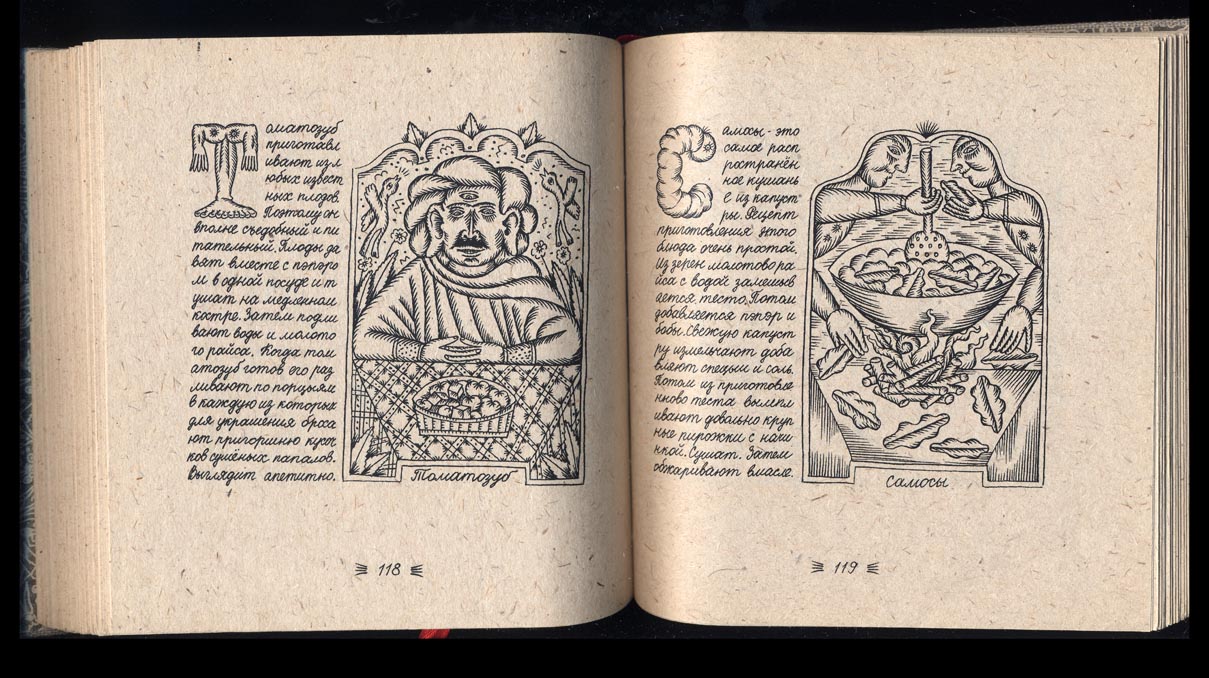 Томатозуб
приготавл
ивают изл
юбых извест
ных плодов.
Поэтому он
вполне съедобный и пи
тательный. Плоды да
вят вместе с пэпэро
м в одной посуде и т
ушат на медленном
костре. Затем подли
вают воды и молото
го райса. Когда том
атозуб готов его раз
ливают по порцыям
в каждую из которых
для украшения броса
ют пригоршню кусоч
ков сушёных папалов.
Выглядит апетитно.
Томатозуб
118
Самосы - это
самое расп
ространён
ное кушань
е из капуст
ры. Рецепт
приготовления этого
блюда очень простой.
Из зерен молотово ра
йса с водой замешыв
ается тесто. Потом
добавляется пэпэр и
бобы. Свежую капуст
ру измельчают доба
вляют спецыи и соль.
Потом из приготовле
нново теста вылепл
ивают довольно круп
ные пирожки с начи
нкой. Сушат. Затем
обжаривают вмасле.
Самосы
119